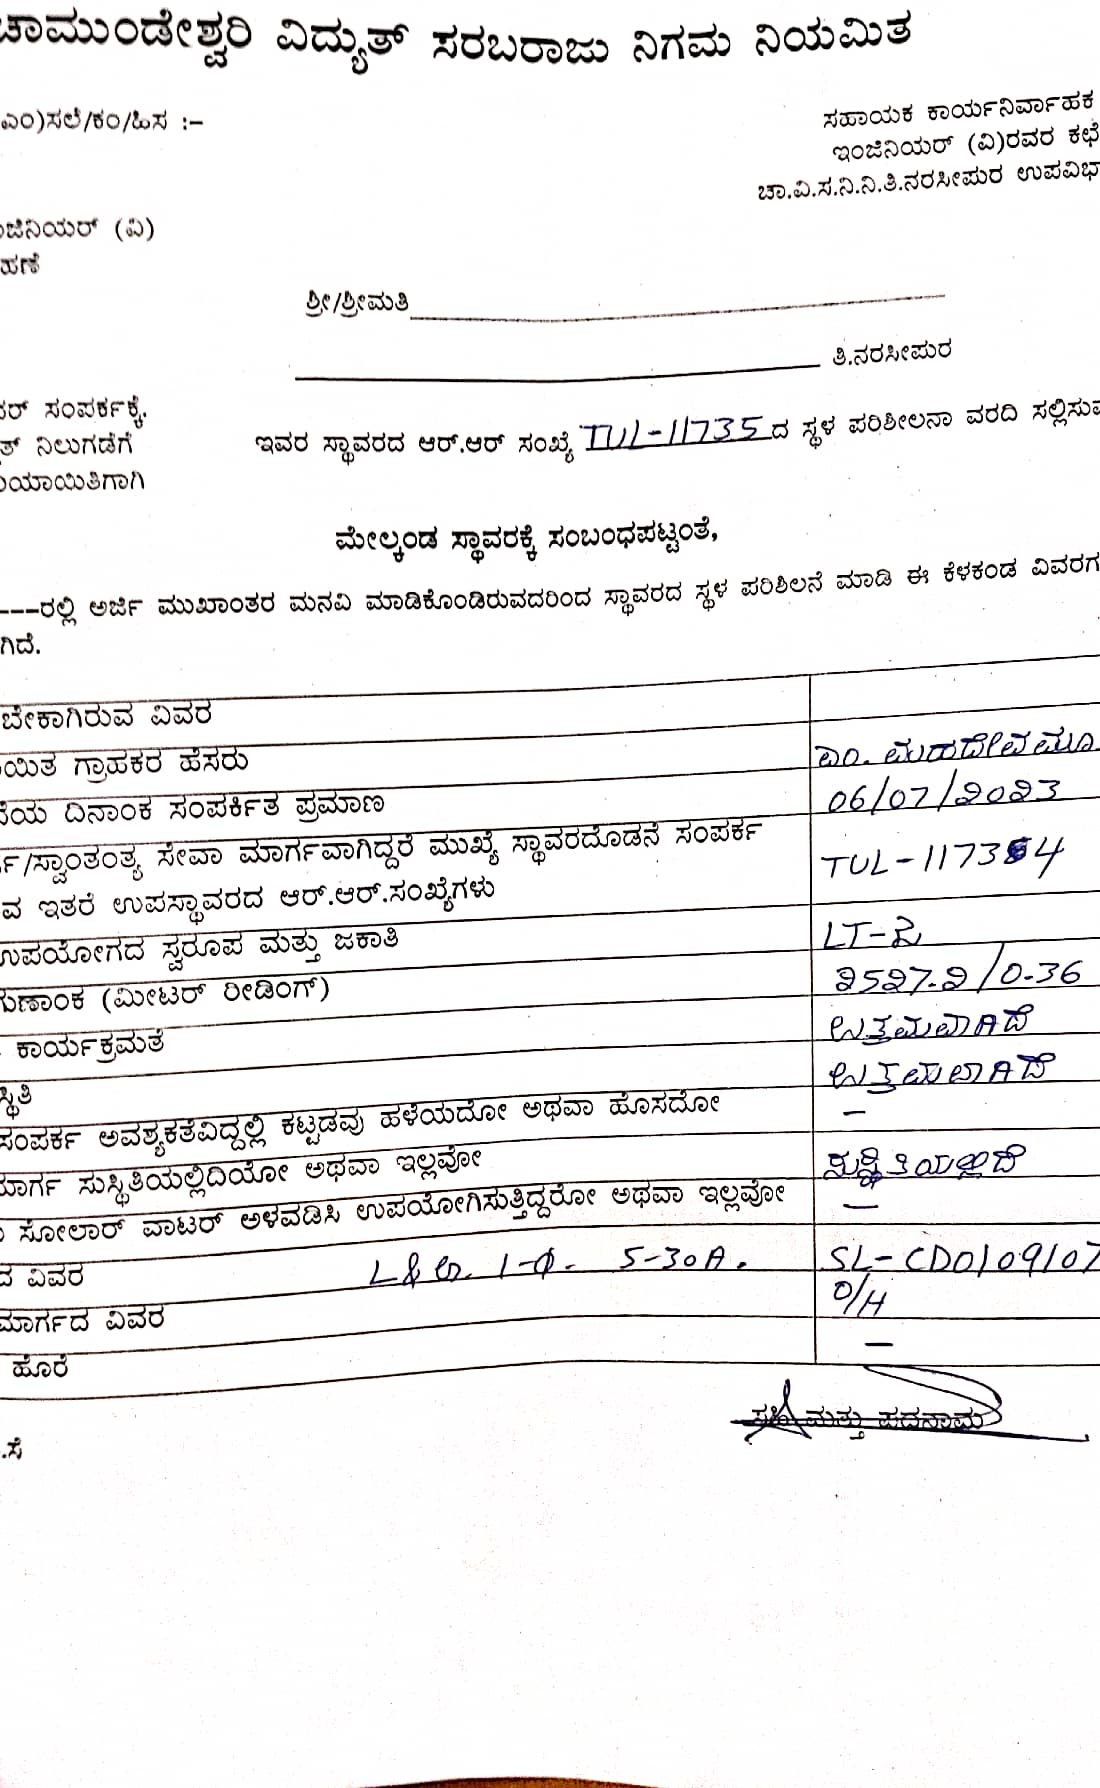 ಚಾಮುಂಡೇಶ್ವರಿ ವಿದ್ಯುತ್ ಸರಬರಾಜು ನಿಗಮ ನಿಯಮಿತ
ಎಂ)ಸಲೆ/ಕಂ/ಹಿಸ :–
ಸಹಾಯಕ ಕಾರ್ಯನಿರ್ವಾಹಕ
ಇಂಜಿನಿಯರ್ (ವಿ)ರವರ ಕಛೆ
ಚಾ.ವಿ.ಸ.ನಿ.ನಿ.ತಿ.ನರಸೀಪುರ ಉಪವಿಭಾ
ಂಜಿನಿಯರ್ (ವಿ)
ಹಣೆ
ಶ್ರೀ/ಶ್ರೀಮತಿ
ತಿ.ನರಸೀಪುರ
ವರ್ ಸಂಪರ್ಕಕ್ಕೆ.
ತ್ ನಿಲುಗಡೆಗೆ
ಯಾಯಿತಿಗಾಗಿ
ಇವರ ಸ್ಥಾವರದ ಆರ್.ಆರ್ ಸಂಖ್ಯೆ TUL-11735 ದ ಸ್ಥಳ ಪರಿಶೀಲನಾ ವರದಿ ಸಲ್ಲಿಸುವ
ಮೇಲ್ಕಂಡ ಸ್ಥಾವರಕ್ಕೆ ಸಂಬಂಧಪಟ್ಟಂತೆ,
---ರಲ್ಲಿ ಅರ್ಜಿ ಮುಖಾಂತರ ಮನವಿ ಮಾಡಿಕೊಂಡಿರುವದರಿಂದ ಸ್ಥಾವರದ ಸ್ಥಳ ಪರಿಶಿಲನೆ ಮಾಡಿ ಈ ಕೆಳಕಂಡ ವಿವರಗ
ಗಿದೆ.
ಬೇಕಾಗಿರುವ ವಿವರ
ಯಿತ ಗ್ರಾಹಕರ ಹೆಸರು ಎಂ. ಮಹದೇವಮೂ
ಯ ದಿನಾಂಕ ಸಂಪರ್ಕಿತ ಪ್ರಮಾಣ 06/07/2023
ರ್ಗ/ಸ್ವಾಂತಂತ್ಯ ಸೇವಾ ಮಾರ್ಗವಾಗಿದ್ದರೆ ಮುಖ್ಯೆ ಸ್ಥಾವರದೊಡನೆ ಸಂಪರ್ಕ TUL-11734
ವ ಇತರೆ ಉಪಸ್ಥಾವರದ ಆರ್.ಆರ್.ಸಂಖ್ಯೆಗಳು
ಉಪಯೋಗದ ಸ್ವರೂಪ ಮತ್ತು ಜಕಾತಿ LT-2
ಗುಣಾಂಕ (ಮೀಟರ್ ರೀಡಿಂಗ್) 2527.2/0.36
ಕಾರ್ಯಕ್ರಮತೆ ಉತ್ತಮವಾಗಿದೆ
ಸ್ಥಿತಿ ಉತ್ತಮವಾಗಿದೆ
ಸಂಪರ್ಕ ಅವಶ್ಯಕತೆವಿದ್ದಲ್ಲಿ ಕಟ್ಟಡವು ಹಳೆಯದೋ ಅಥವಾ ಹೊಸದೋ –
ಮಾರ್ಗ ಸುಸ್ಥಿತಿಯಲ್ಲಿದಿಯೋ ಅಥವಾ ಇಲ್ಲವೋ ಸುಸ್ಥಿತಿಯಲ್ಲಿದೆ
ಸೋಲಾರ್ ವಾಟರ್ ಅಳವಡಿಸಿ ಉಪಯೋಗಿಸುತ್ತಿದ್ದರೋ ಅಥವಾ ಇಲ್ಲವೋ –
ದ ವಿವರ L&G. 1-Φ. 5-30A. SL-CD0109107
ಮಾರ್ಗದ ವಿವರ O/H
ಹೊರೆ –
ಸಹಿ ಮತ್ತು ಪದನಾಮ
.ಸೆ